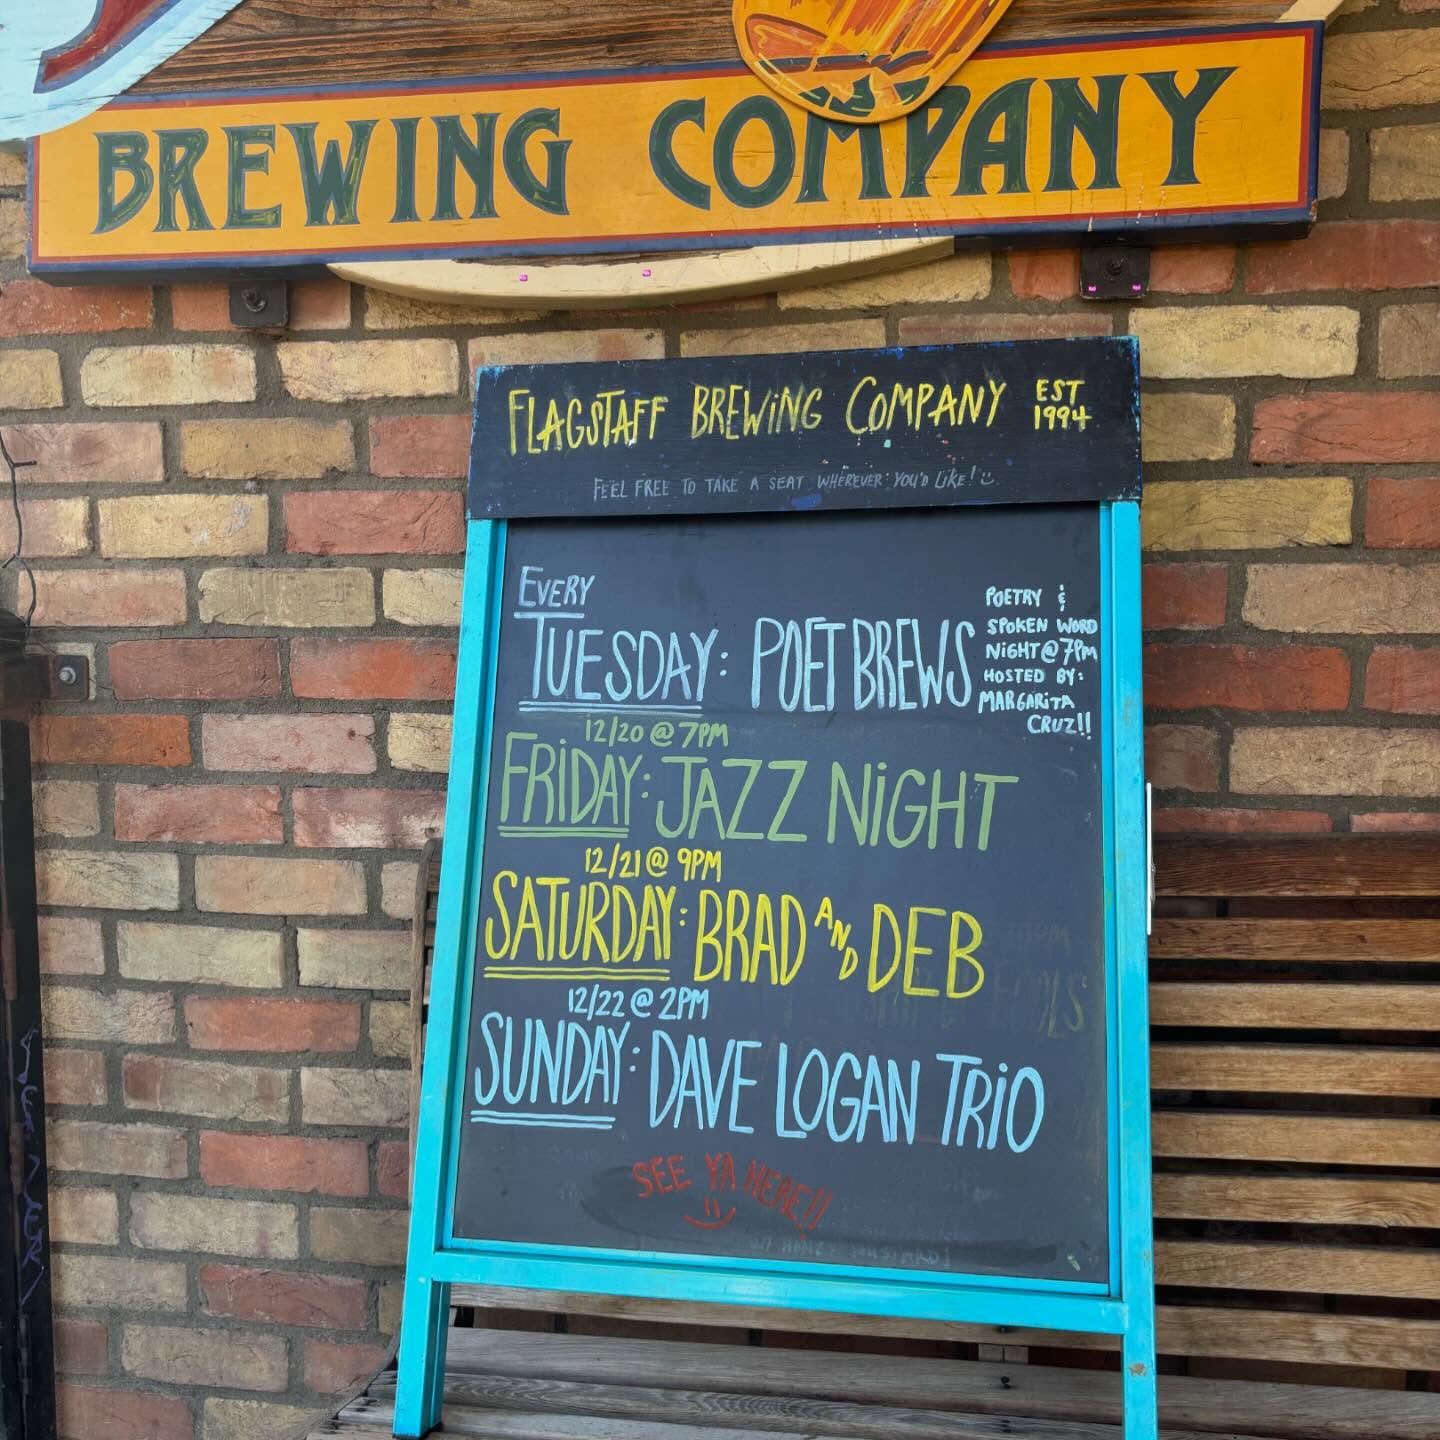 BREWING COMPANY
FLAGSTAFF BREWING COMPANY EST 1994
FEEL FREE TO TAKE A SEAT WHEREVER YOU'D LIKE!
EVERY
TUESDAY: POET BREWS
POETRY &
SPOKEN WORD
NIGHT @ 7PM
HOSTED BY:
MARGARITA
CRUZ!!
12/20 @ 7PM
FRIDAY: JAZZ NIGHT
12/21 @ 9PM
SATURDAY: BRAD AND DEB
12/22 @ 2PM
SUNDAY: DAVE LOGAN TRIO
SEE YA HERE!!